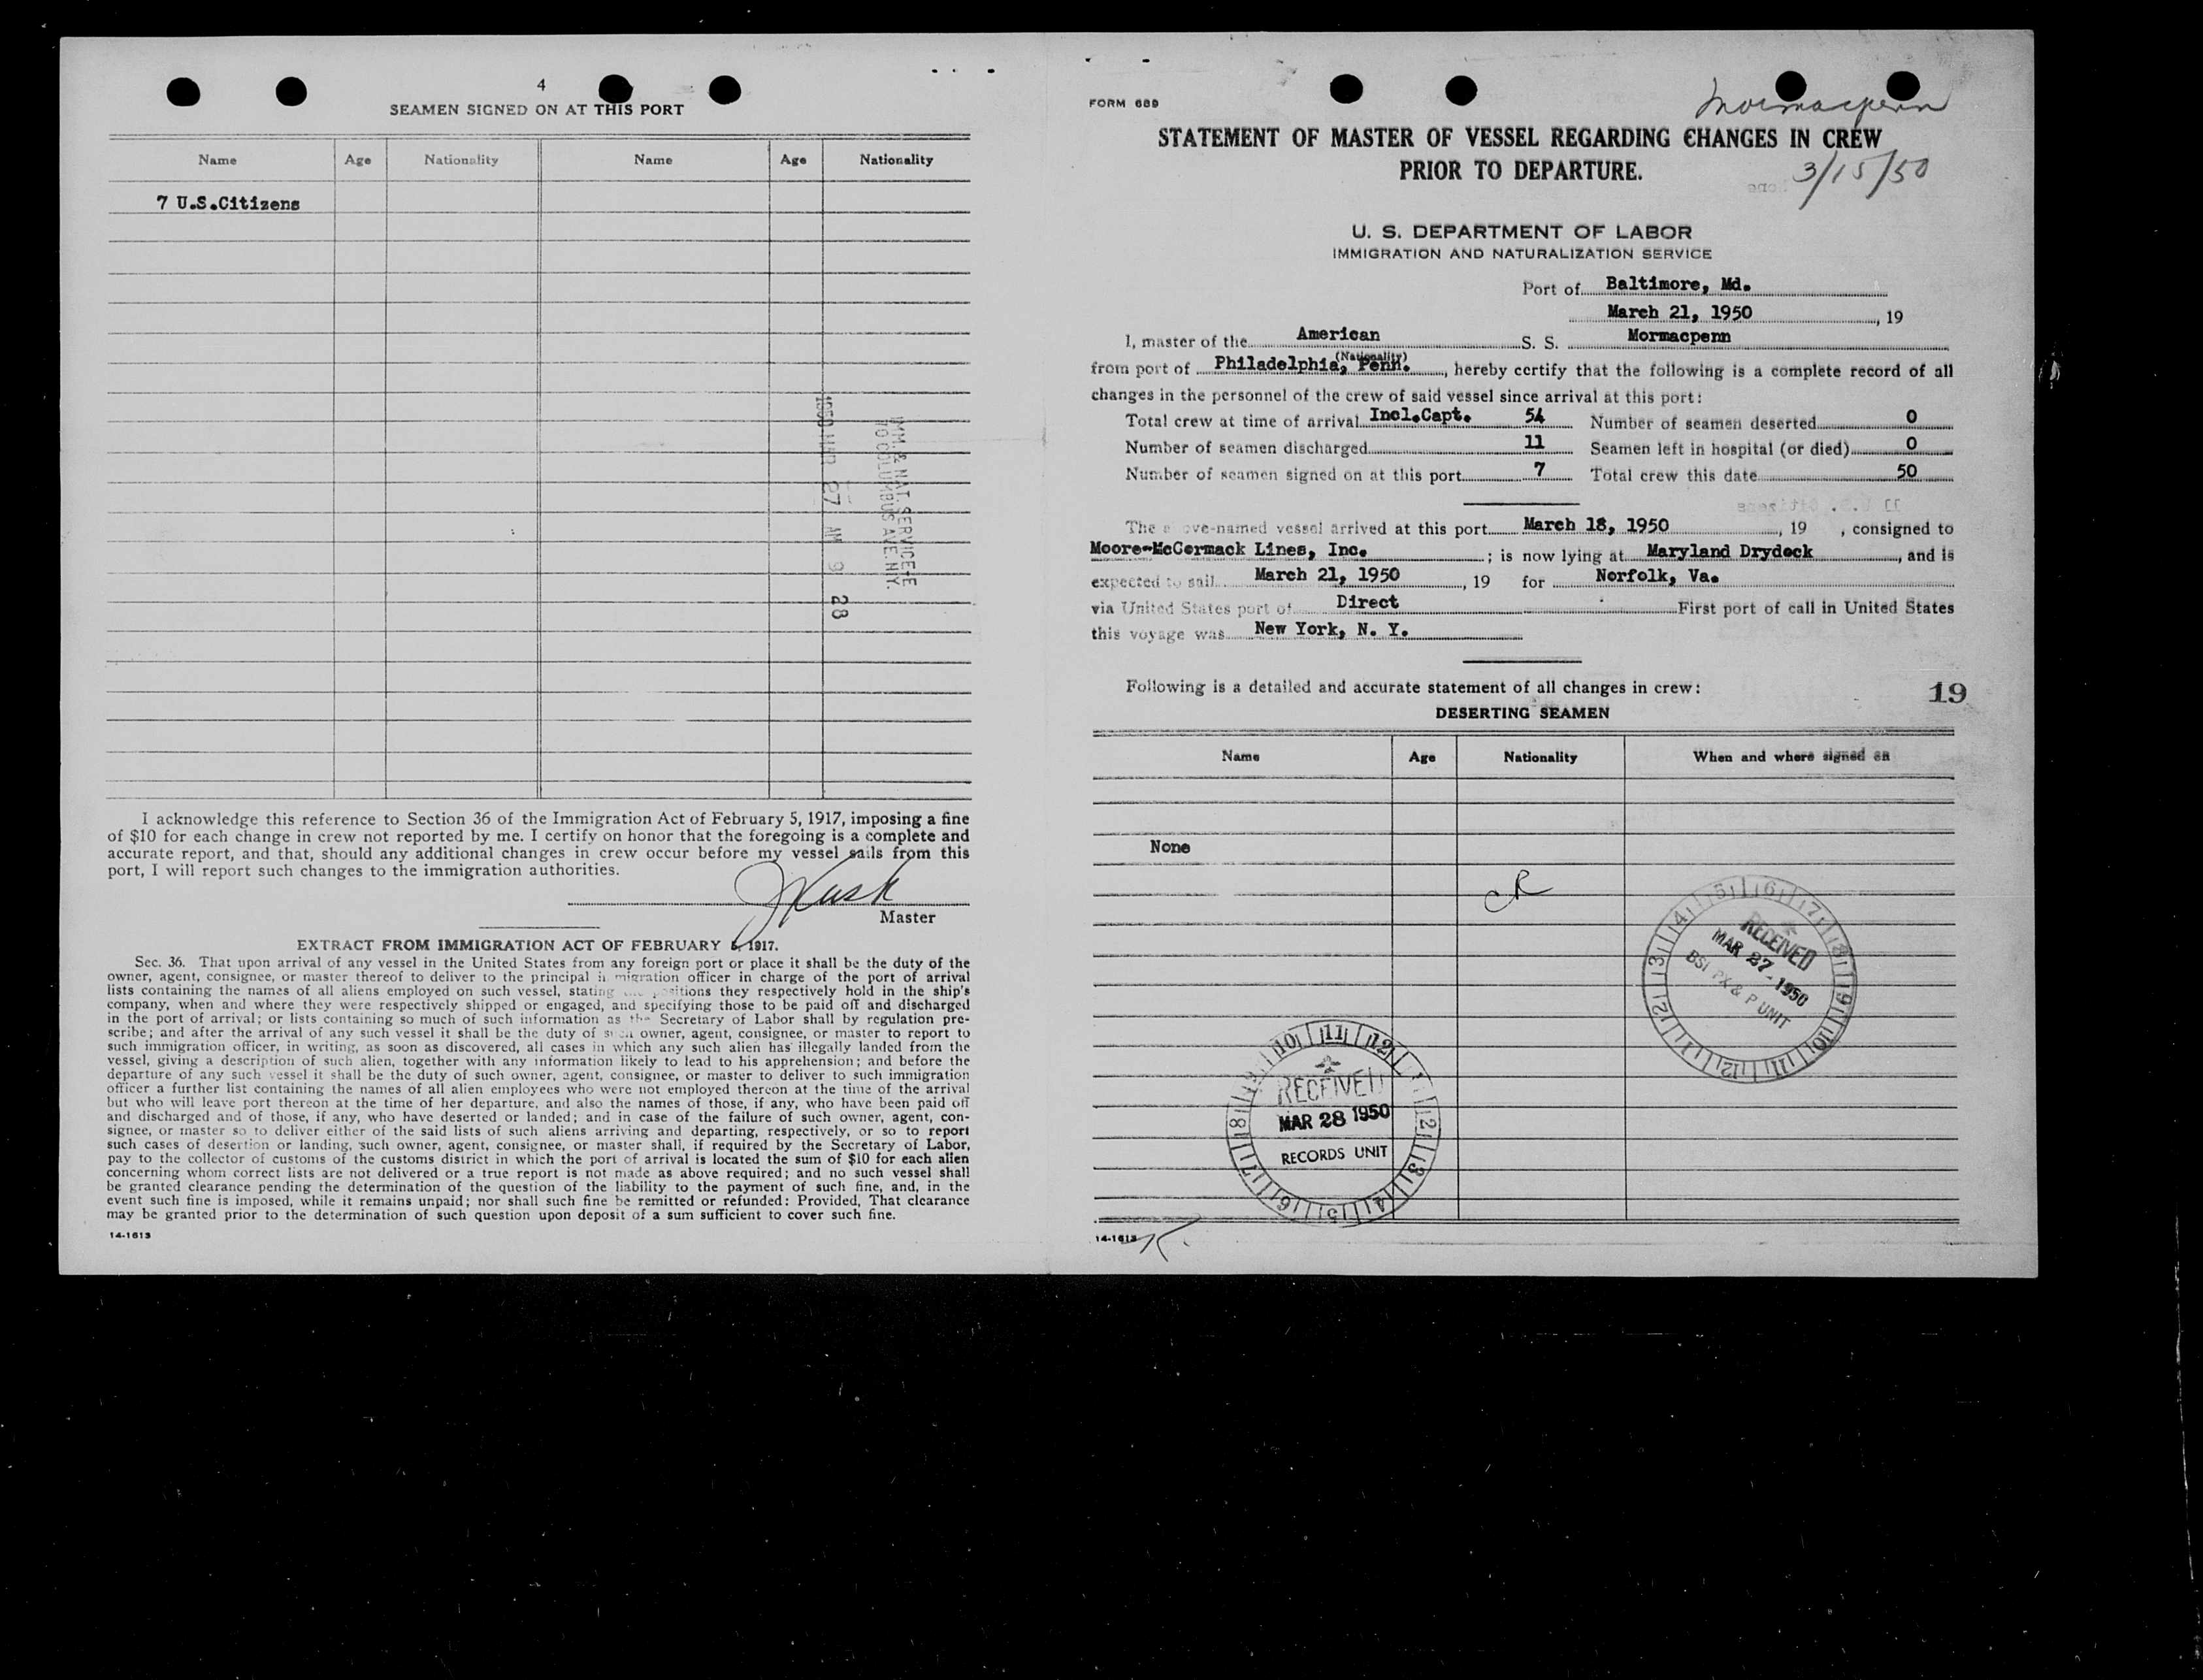 4
SEAMEN SIGNED ON AT THIS PORT
Name Age Nationality Name Age Nationality
7 U.S.Citizens
IMM. & NAT. SERVICE
70 COLUMBUS AVE. N.Y.
1950 MAR 27 AM 9 28
I acknowledge this reference to Section 36 of the Immigration Act of February 5, 1917, imposing a fine
of $10 for each change in crew not reported by me. I certify on honor that the foregoing is a complete and
accurate report, and that, should any additional changes in crew occur before my vessel sails from this
port, I will report such changes to the immigration authorities.
Master
EXTRACT FROM IMMIGRATION ACT OF FEBRUARY 5, 1917.
Sec. 36. That upon arrival of any vessel in the United States from any foreign port or place it shall be the duty of the
owner, agent, consignee, or master thereof to deliver to the principal immigration officer in charge of the port of arrival
lists containing the names of all aliens employed on such vessel, stating the positions they respectively hold in the ship's
company, when and where they were respectively shipped or engaged, and specifying those to be paid off and discharged
in the port of arrival; or lists containing so much of such information as the Secretary of Labor shall by regulation pre-
scribe; and after the arrival of any such vessel it shall be the duty of such owner, agent, consignee, or master to report to
such immigration officer, in writing, as soon as discovered, all cases in which any such alien has illegally landed from the
vessel, giving a description of such alien, together with any information likely to lead to his apprehension; and before the
departure of any such vessel it shall be the duty of such owner, agent, consignee, or master to deliver to such immigration
officer a further list containing the names of all alien employees who were not employed thereon at the time of the arrival
but who will leave port thereon at the time of her departure, and also the names of those, if any, who have been paid off
and discharged and of those, if any, who have deserted or landed; and in case of the failure of such owner, agent, con-
signee, or master so to deliver either of the said lists of such aliens arriving and departing, respectively, or so to report
such cases of desertion or landing, such owner, agent, consignee, or master shall, if required by the Secretary of Labor,
pay to the collector of customs of the customs district in which the port of arrival is located the sum of $10 for each alien
concerning whom correct lists are not delivered or a true report is not made as above required; and no such vessel shall
be granted clearance pending the determination of the question of the liability to the payment of such fine, and, in the
event such fine is imposed, while it remains unpaid; nor shall such fine be remitted or refunded: Provided, That clearance
may be granted prior to the determination of such question upon deposit of a sum sufficient to cover such fine.
14-1613
FORM 689
Mormacpenn
STATEMENT OF MASTER OF VESSEL REGARDING CHANGES IN CREW
PRIOR TO DEPARTURE.
3/15/50
U. S. DEPARTMENT OF LABOR
IMMIGRATION AND NATURALIZATION SERVICE
Port of Baltimore, Md.
March 21, 1950, 19
I, master of the American S. S. Mormacpenn
(Nationality)
from port of Philadelphia, Penn., hereby certify that the following is a complete record of all
changes in the personnel of the crew of said vessel since arrival at this port:
Total crew at time of arrival Incl.Capt. 54 Number of seamen deserted 0
Number of seamen discharged 11 Seamen left in hospital (or died) 0
Number of seamen signed on at this port 7 Total crew this date 50
The above-named vessel arrived at this port March 18, 1950, 19 , consigned to
Moore-McCormack Lines, Inc. ; is now lying at Maryland Drydock, and is
expected to sail March 21, 1950, 19 for Norfolk, Va.
via United States port of Direct First port of call in United States
this voyage was New York, N. Y.
Following is a detailed and accurate statement of all changes in crew:
19
DESERTING SEAMEN
Name Age Nationality When and where signed on
None
CR
RECEIVED
MAR 27 1950
BSI PX & P UNIT
RECEIVED
MAR 28 1950
RECORDS UNIT
14-1613